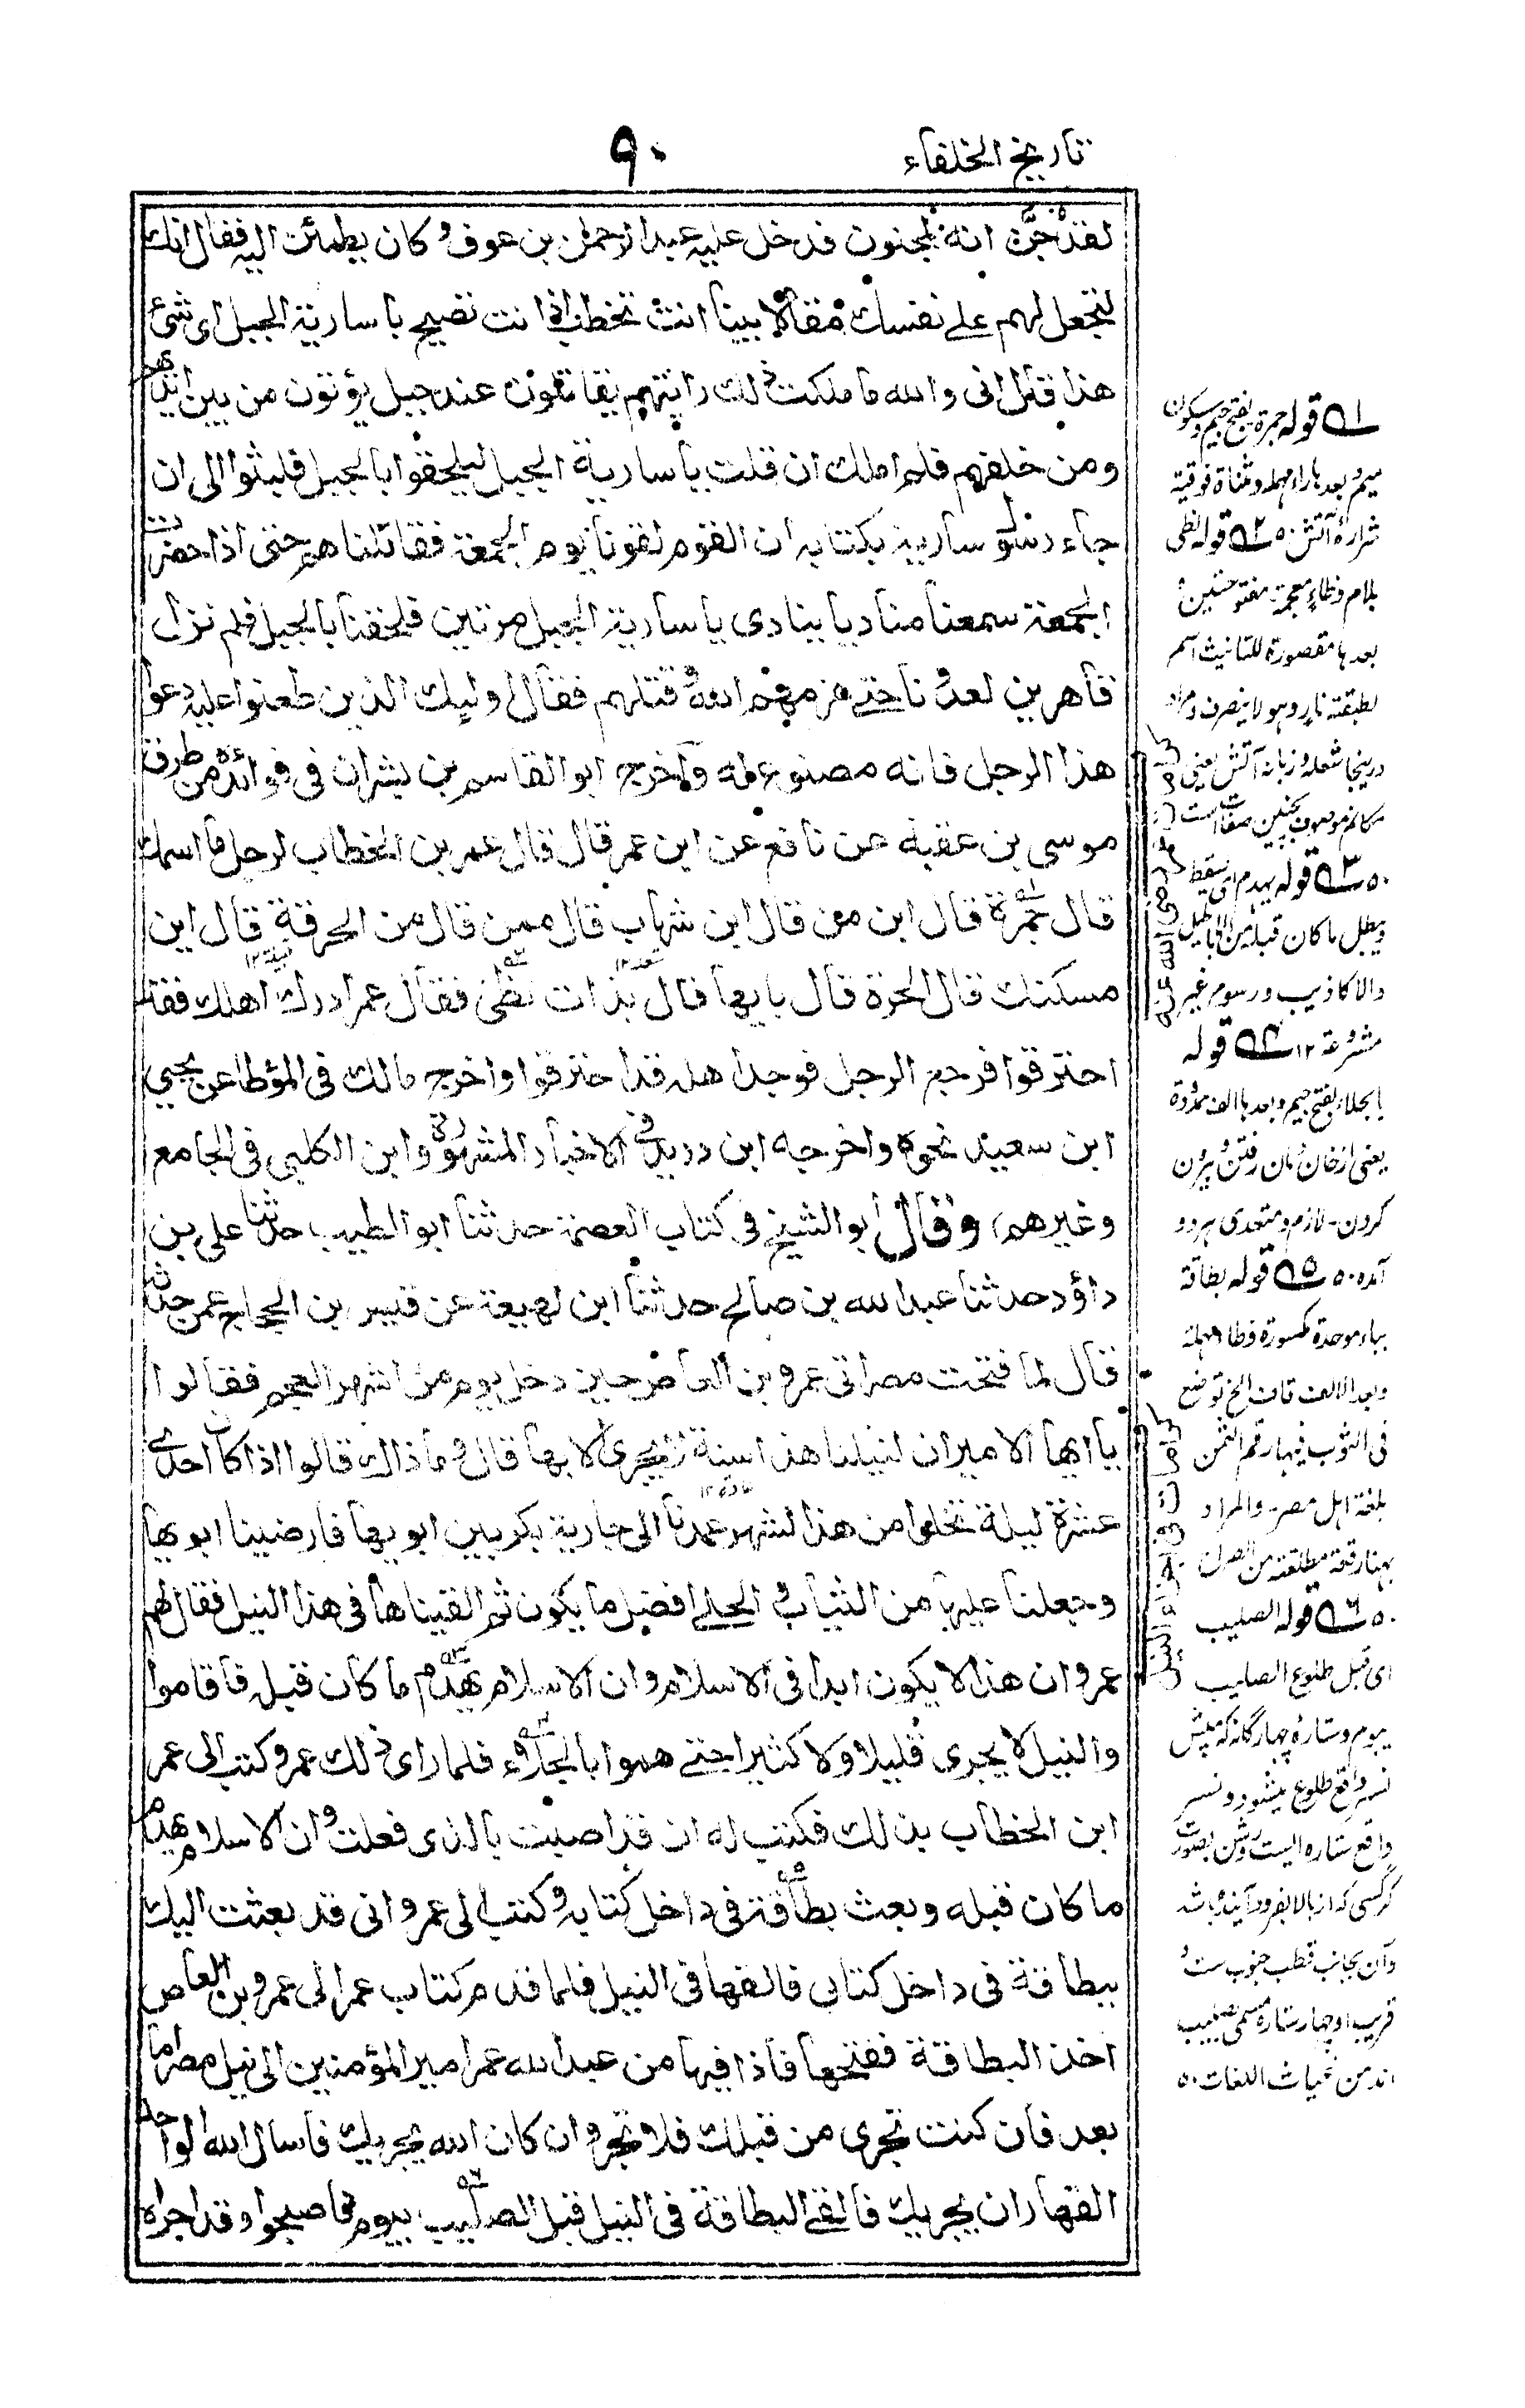 تاريخ الخلفاء
٩٠
لقد جُنّ انه لمجنون فدخل عليه عبد الرحمٰن بن عوف و كان يطمئن اليه فقال انك
لتجعل لهم على نفسك مقالا بينا انت تخطب اذ انت تصيح يا سارية الجبل اى شئ
هذا قال انى والله ما ملكت ذلك رايتهم يقاتلون عند جبل يؤتون من بين ايديهم
ومن خلفهم فلم املك ان قلت يا سارية الجبل ليلحقوا بالجبل فلبثوا الى ان
جاء رسول سارية بكتابه ان القوم لقونا يوم الجمعة فقاتلناهم حتى اذا حضرت
الجمعة سمعنا مناديا ينادى يا سارية الجبل مرتين فلحقنا بالجبل فلم نزل
قاهرين لعدونا حتے هزمهم الله و قتلهم فقال اوليك الذين طعنوا عليه دعوا
هذا الرجل فانه مصنوع له واخرج ابو القاسم بن بشران فى فوائده من طريق
موسى بن عقبة عن نافع عن ابن عمر قال قال عمر بن الخطاب لرجل ما اسمك
قال جمرة قال ابن من قال ابن شهاب قال ممن قال من الحرقة قال اين
مسكنك قال الحرة قال بايها قال بذات لظى فقال عمر ادرك اهلك فقد
احترقوا فرجع الرجل فوجد اهله قد احترقوا واخرج مالك فى المؤطا عن يحيى
ابن سعيد نحوه واخرجه ابن دريد فى الاخبار المشهورة وابن الكلبى فى الجامع
وغيرهم، وقال ابو الشيخ فى كتاب العصمة حدثنا ابو الطيب حدثنا على بن
داؤد حدثنا عبد الله بن صالح حدثنا ابن لهيعة عن قيس بن الحجاج عمن حدثه
قال لما فتحت مصر اتى عمرو بن العاص حين دخل يوم من اشهر العجم فقالوا
يا ايها الامير ان لنيلنا هذا سنة لا يجرى الا بها قال و ما ذاك قالوا اذا كان احدى
عشرة ليلة تخلوا من هذا الشهر عمدنا الى جارية بكر بين ابويها فارضينا ابويها
وجعلنا عليها من الثياب و الحلے افضل ما يكون ثم القيناها فى هذا النيل فقال لهم
عمرو ان هذا لا يكون ابدا فى الاسلام وان الاسلام يهدم ما كان قبله فاقاموا
والنيل لا يجرى قليلا ولا كثيرا حتے هموا بالجلاء فلما راى ذلك عمرو كتب الى عمر
ابن الخطاب بذلك فكتب له ان قد اصبت بالذى فعلت و ان الاسلام يهدم
ما كان قبله وبعث بطاقة فى داخل كتابه و كتب الى عمرو انى قد بعثت اليك
ببطاقة فى داخل كتابى فالقها فى النيل فلما قدم كتاب عمر الى عمرو بن العاص
اخذ البطاقة ففتحها فاذا فيها من عبد الله عمر امير المؤمنين الى نيل مصر اما
بعد فان كنت تجرى من قبلك فلا تجر و ان كان الله يجريك فاسال الله الواحد
القهار ان يجريك فالقے البطاقة فى النيل قبل الصليب بيوم فاصبحوا وقد اجراه
١ قوله جمرة بفتح جيم وسكون
ميم و بعدها راء مهملة ومثناة فوقية
شرارۀ آتش ٢ قوله لظى
بلام وظاء معجمة مفتوحتين
بعدها مقصورة للتانيث اسم
لطبقة نار وهو لا ينصرف و مراد
درينجا شعله و زبانه آتش يعنى
٣ قوله يهدم اى يسقط
ويبطل ما كان قبله من الاباطيل
والاكاذيب ورسوم غير
مشروعة ١٢ ٤ قوله
بالجلاء بفتح جيم و بعدها الف ممدودة
يعنى از خان و مان رفتن و بيرون
كردن - لازم و متعدى هر دو
آمده ٥ قوله بطاقة
بباء موحدة مكسورة وطاء مهملة
وبعد الالف قاف الخ توضع
فى الثوب فيها رقم الثمن
بلغة اهل مصر والمراد
ههنا رقعة مطلقة
٦ قوله الصليب
اى قبل طلوع الصليب
بيوم و ستارۀ چهارگانه كه پيش
نسر واقع طلوع ميشود و نسر
واقع ستاره ايست روشن بصورت
كرگسى كه از بالا بفرود آينده باشد
وآن بجانب قطب جنوب ست و
قريب او چهار ستاره مسمى بصليب
اند من غياث اللغات